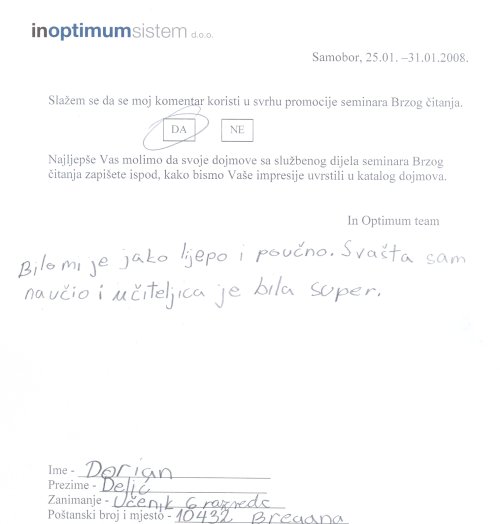 inoptimumsistem d.o.o.
Samobor, 25.01. –31.01.2008.
Slažem se da se moj komentar koristi u svrhu promocije seminara Brzog čitanja.
DA NE
Najljepše Vas molimo da svoje dojmove sa službenog dijela seminara Brzog
čitanja zapišete ispod, kako bismo Vaše impresije uvrstili u katalog dojmova.
In Optimum team
Bilo mi je jako lijepo i poučno. Svašta sam
naučio i učiteljica je bila super.
Ime - Dorian
Prezime - Delić
Zanimanje - Učenik 6 razreda
Poštanski broj i mjesto - 10432 Bregana